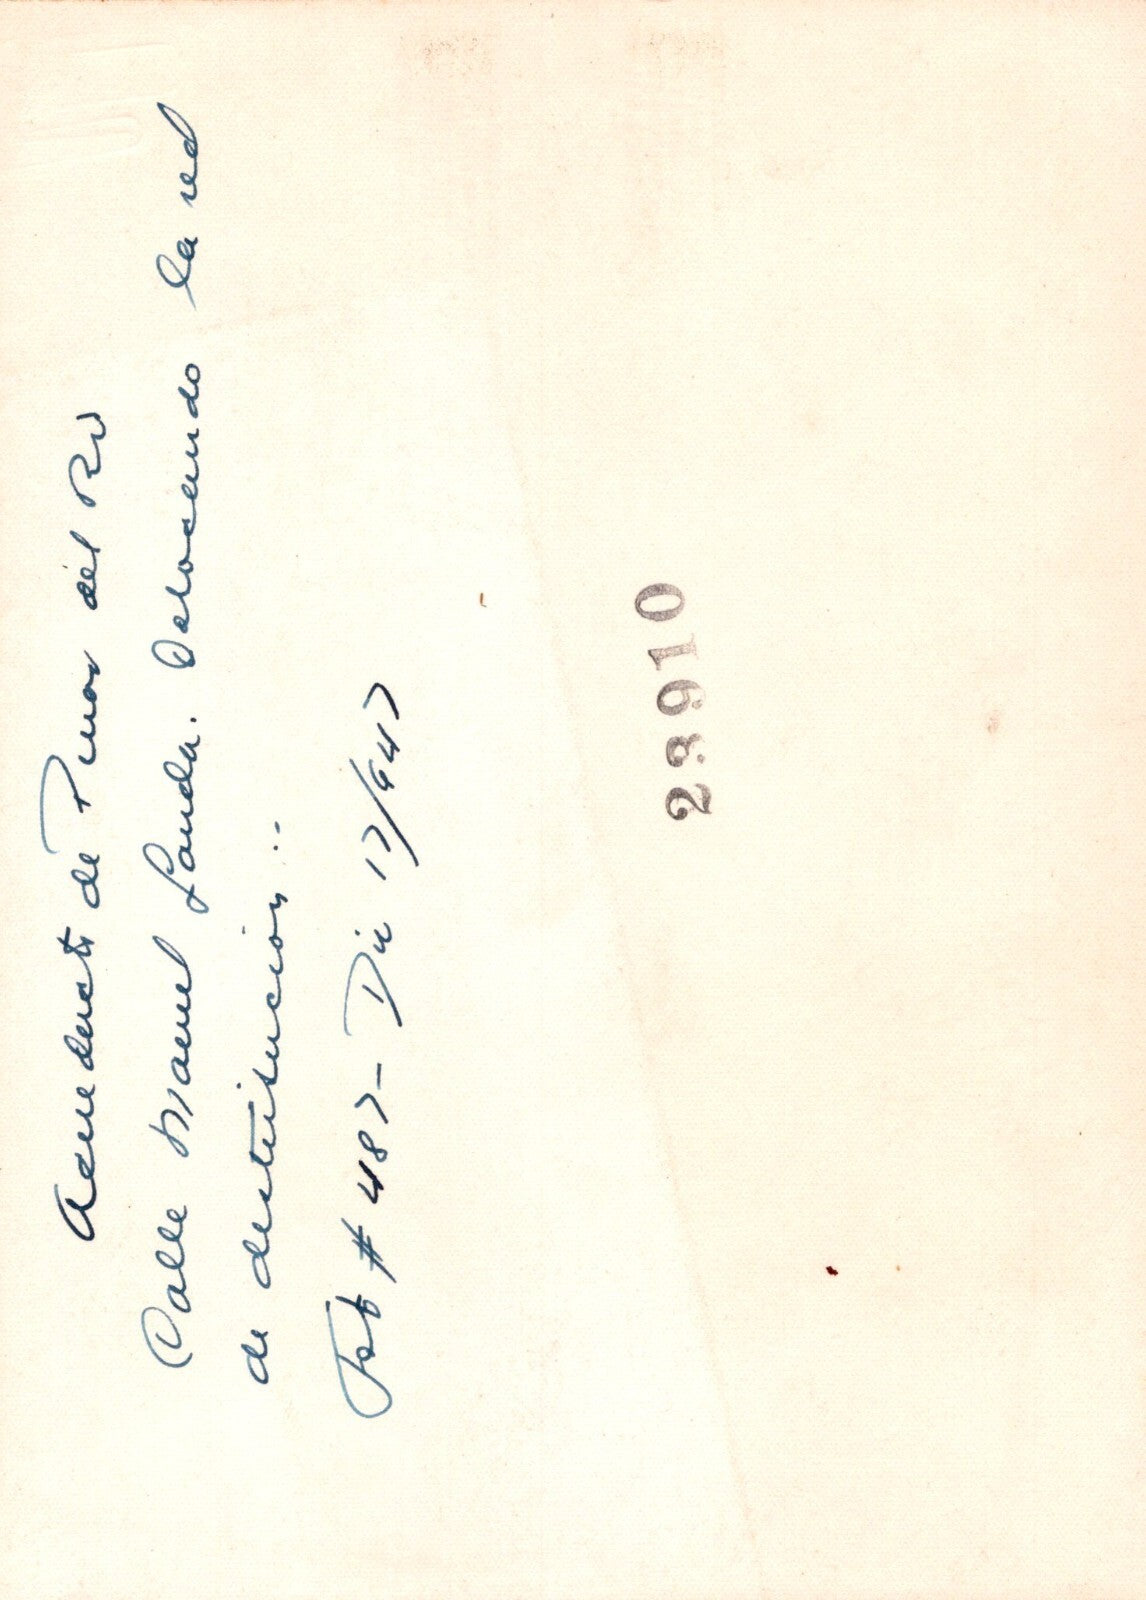 Acueducto de Pinar del Rio
Calle Manuel Landa. Colocando la red
de distribucion..
Job # 487- Dic 17/947
23910